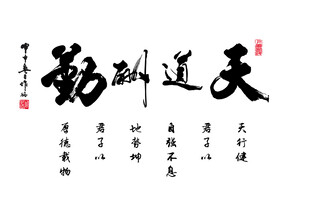 天道酬勤
天行健
君子以
自强不息
地势坤
君子以
厚德载物